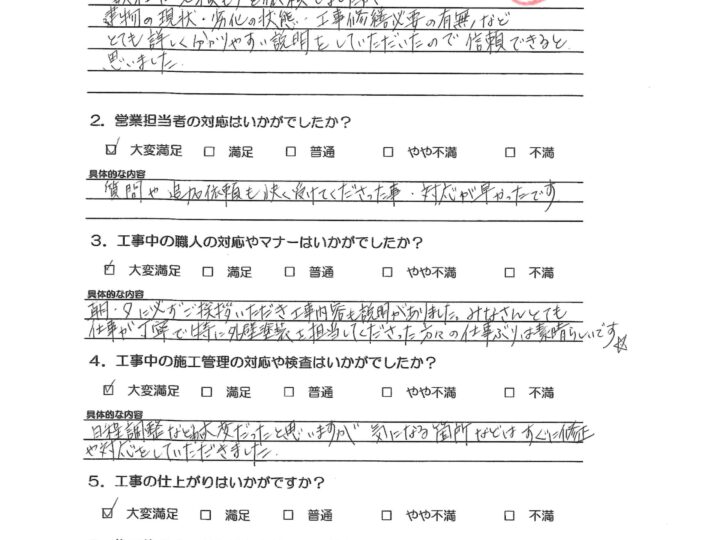 建物の現状・劣化の状態・工事補繕必要の有無など
とても詳しく分かりやすい説明をしていただいたので信頼できると
思いました。
2．営業担当者の対応はいかがでしたか？
☑ 大変満足 □ 満足 □ 普通 □ やや不満 □ 不満
具体的な内容
質問や追加依頼も快く受けてくださった事・対応が早かったです
3．工事中の職人の対応やマナーはいかがでしたか？
☑ 大変満足 □ 満足 □ 普通 □ やや不満 □ 不満
具体的な内容
朝・夕に必ずご挨拶いただき工事内容も説明がありました。みなさんとても
仕事が丁寧で特に外壁塗装を担当してくださった方々の仕事ぶりは素晴らしいです☆
4．工事中の施工管理の対応や検査はいかがでしたか？
☑ 大変満足 □ 満足 □ 普通 □ やや不満 □ 不満
具体的な内容
日程調整など大変だったと思いますが 気になる箇所などはすぐに修正
や対応をしていただきました。
5．工事の仕上がりはいかがですか？
☑ 大変満足 □ 満足 □ 普通 □ やや不満 □ 不満